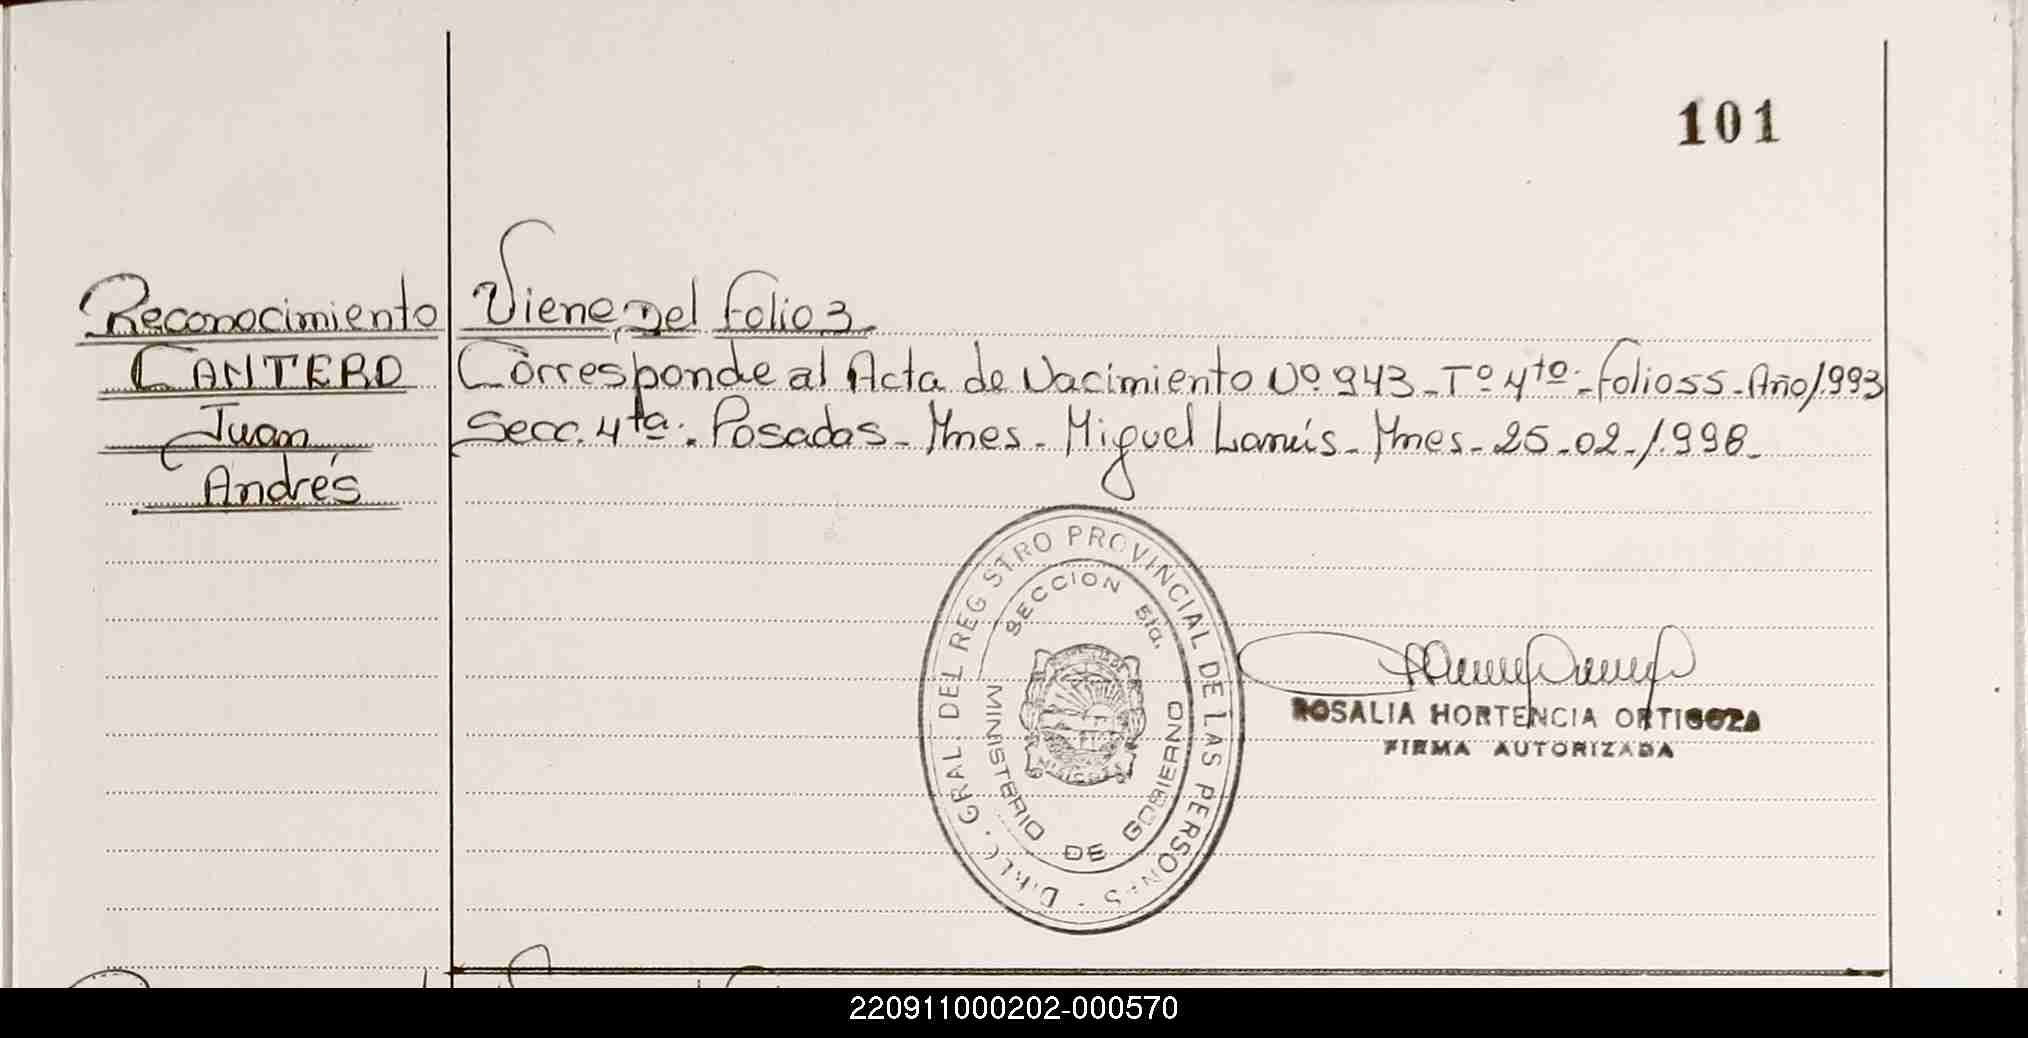 101
Reconocimiento
CANTERO
Juan
Andrés
Viene Del Folio 3
Corresponde al Acta de Nacimiento Nº 943 - Tº 4to - Folio 55 - Año/1993
Secc. 4ta. Posadas - Mnes - Miguel Lanús - Mnes - 25-02-/1998-
GRAL. DEL REGISTRO PROVINCIAL DE LAS PERSONAS
SECCION 5ta.
MINISTERIO DE GOBIERNO
ROSALIA HORTENCIA ORTIGOZA
FIRMA AUTORIZADA
220911000202-000570